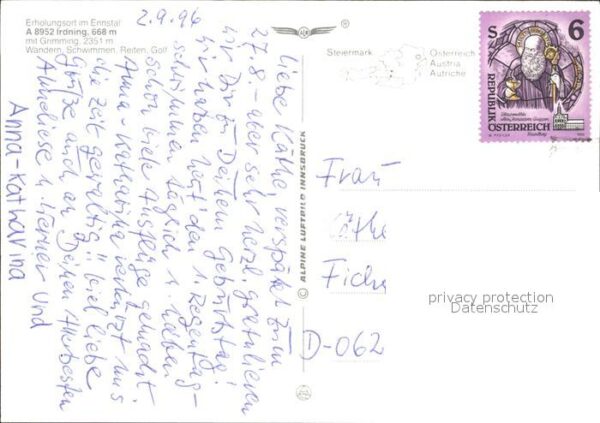 Erholungsort im Ennstal
A 8952 Irdning, 668 m
mit Grimming, 2351 m
Wandern, Schwimmen, Reiten, Golf
2.9.94
Liebe Käthe, verspätet zum
27.8. – aber sehr herzl. gratulieren
wir Dir zu Deinem Geburtstag!
Wir haben heut' den 1. Regentag –
schwimmen täglich u. haben
schon viele Ausflüge gemacht
Anna-Katharina verkürzt uns
die Zeit gewaltig!! Viel liebe
Grüße auch an Deinen Allerbesten
Anneliese u. Werner und
Anna-Katharina
© ALPINE LUFTBILD INNSBRUCK
Steiermark
Österreich
Austria
Autriche
S 6
REPUBLIK
ÖSTERREICH
Frau
Käthe
D-062
privacy protection
Datenschutz